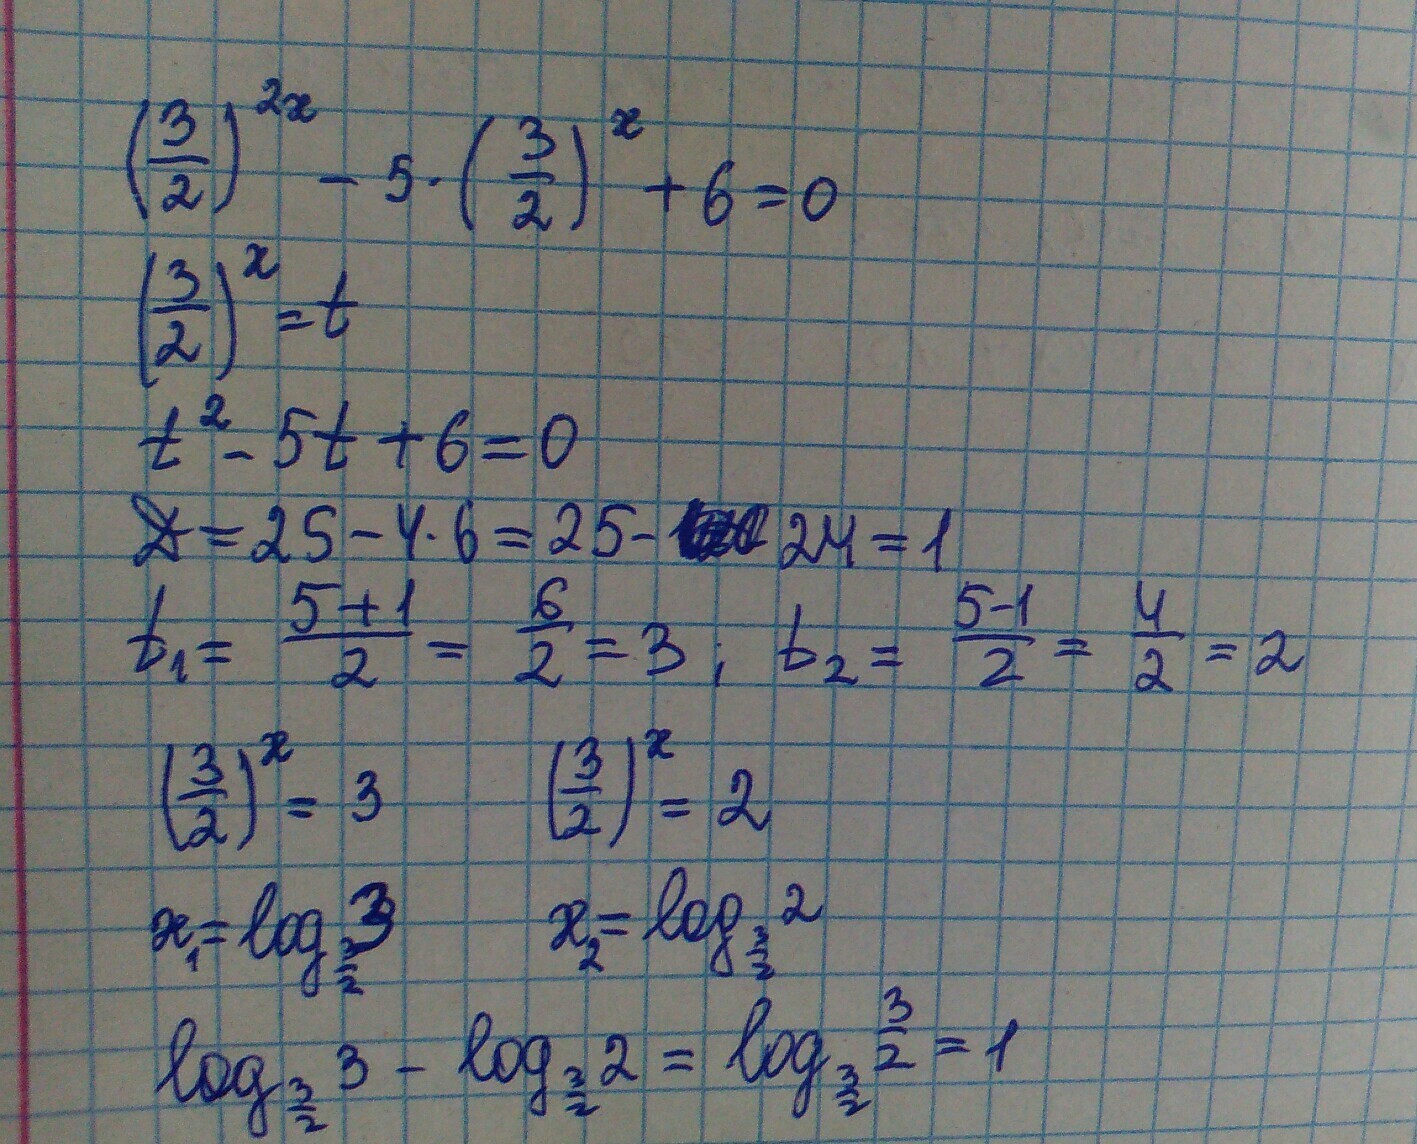 (3/2)^2x − 5·(3/2)^x + 6 = 0
(3/2)^x = t
t² − 5t + 6 = 0
D = 25 − 4·6 = 25 − 24 = 1
t₁ = (5+1)/2 = 6/2 = 3 ; t₂ = (5−1)/2 = 4/2 = 2
(3/2)^x = 3 (3/2)^x = 2
x₁ = log_3/2 3 x₂ = log_3/2 2
log_3/2 3 − log_3/2 2 = log_3/2 3/2 = 1